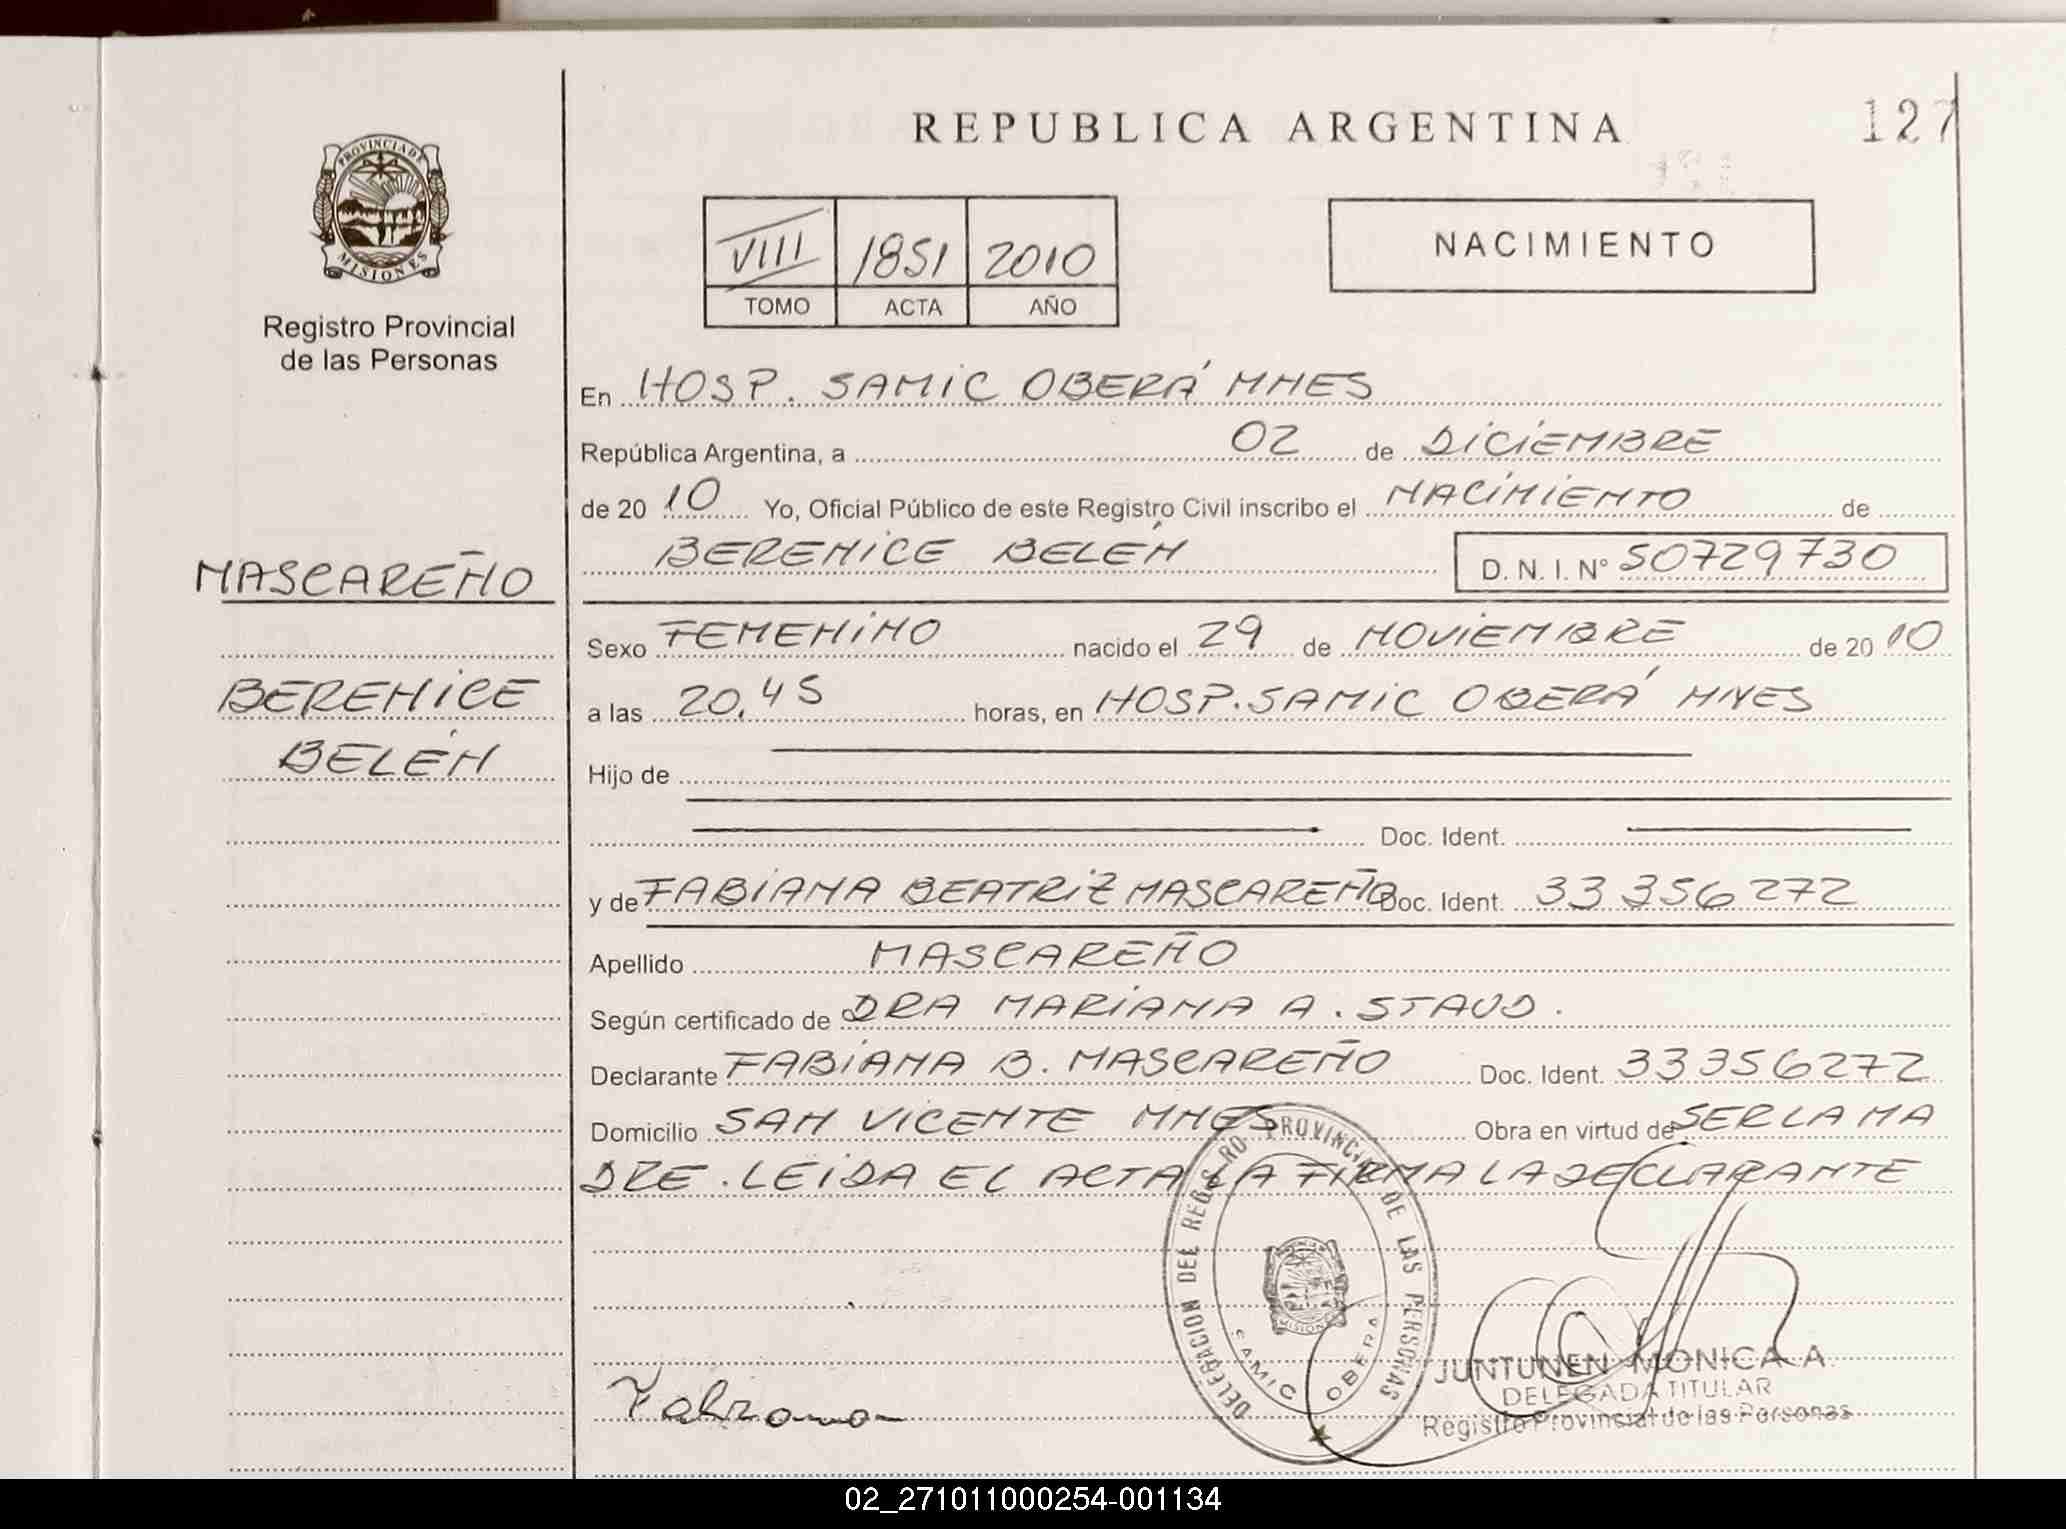 REPUBLICA ARGENTINA
127
PROVINCIA DE
MISIONES
Registro Provincial
de las Personas
VIII 1851 2010
TOMO ACTA AÑO
NACIMIENTO
En HOSP. SAMIC OBERÁ MNES
República Argentina, a 02 de DICIEMBRE
de 2010 Yo, Oficial Público de este Registro Civil inscribo el NACIMIENTO de
BERENICE BELÉN D. N. I. Nº 50729730
MASCAREÑO
BERENICE
BELÉN
Sexo FEMENINO nacido el 29 de NOVIEMBRE de 2010
a las 20,45 horas, en HOSP. SAMIC OBERÁ MNES
Hijo de
Doc. Ident.
y de FABIANA BEATRIZ MASCAREÑO Doc. Ident. 33 356 272
Apellido MASCAREÑO
Según certificado de DRA MARIANA A. STAUD.
Declarante FABIANA B. MASCAREÑO Doc. Ident. 33356272
Domicilio SAN VICENTE MNES Obra en virtud de SER LA MA
DRE. LEIDA EL ACTA LA FIRMA LA DECLARANTE
DELEGACION DEL REGISTRO PROVINCIAL DE LAS PERSONAS
MISIONES
SAMIC OBERA
JUNTUNEN MONICA A.
DELEGADA TITULAR
Registro Provincial de las Personas
Fabiana
02_271011000254-001134